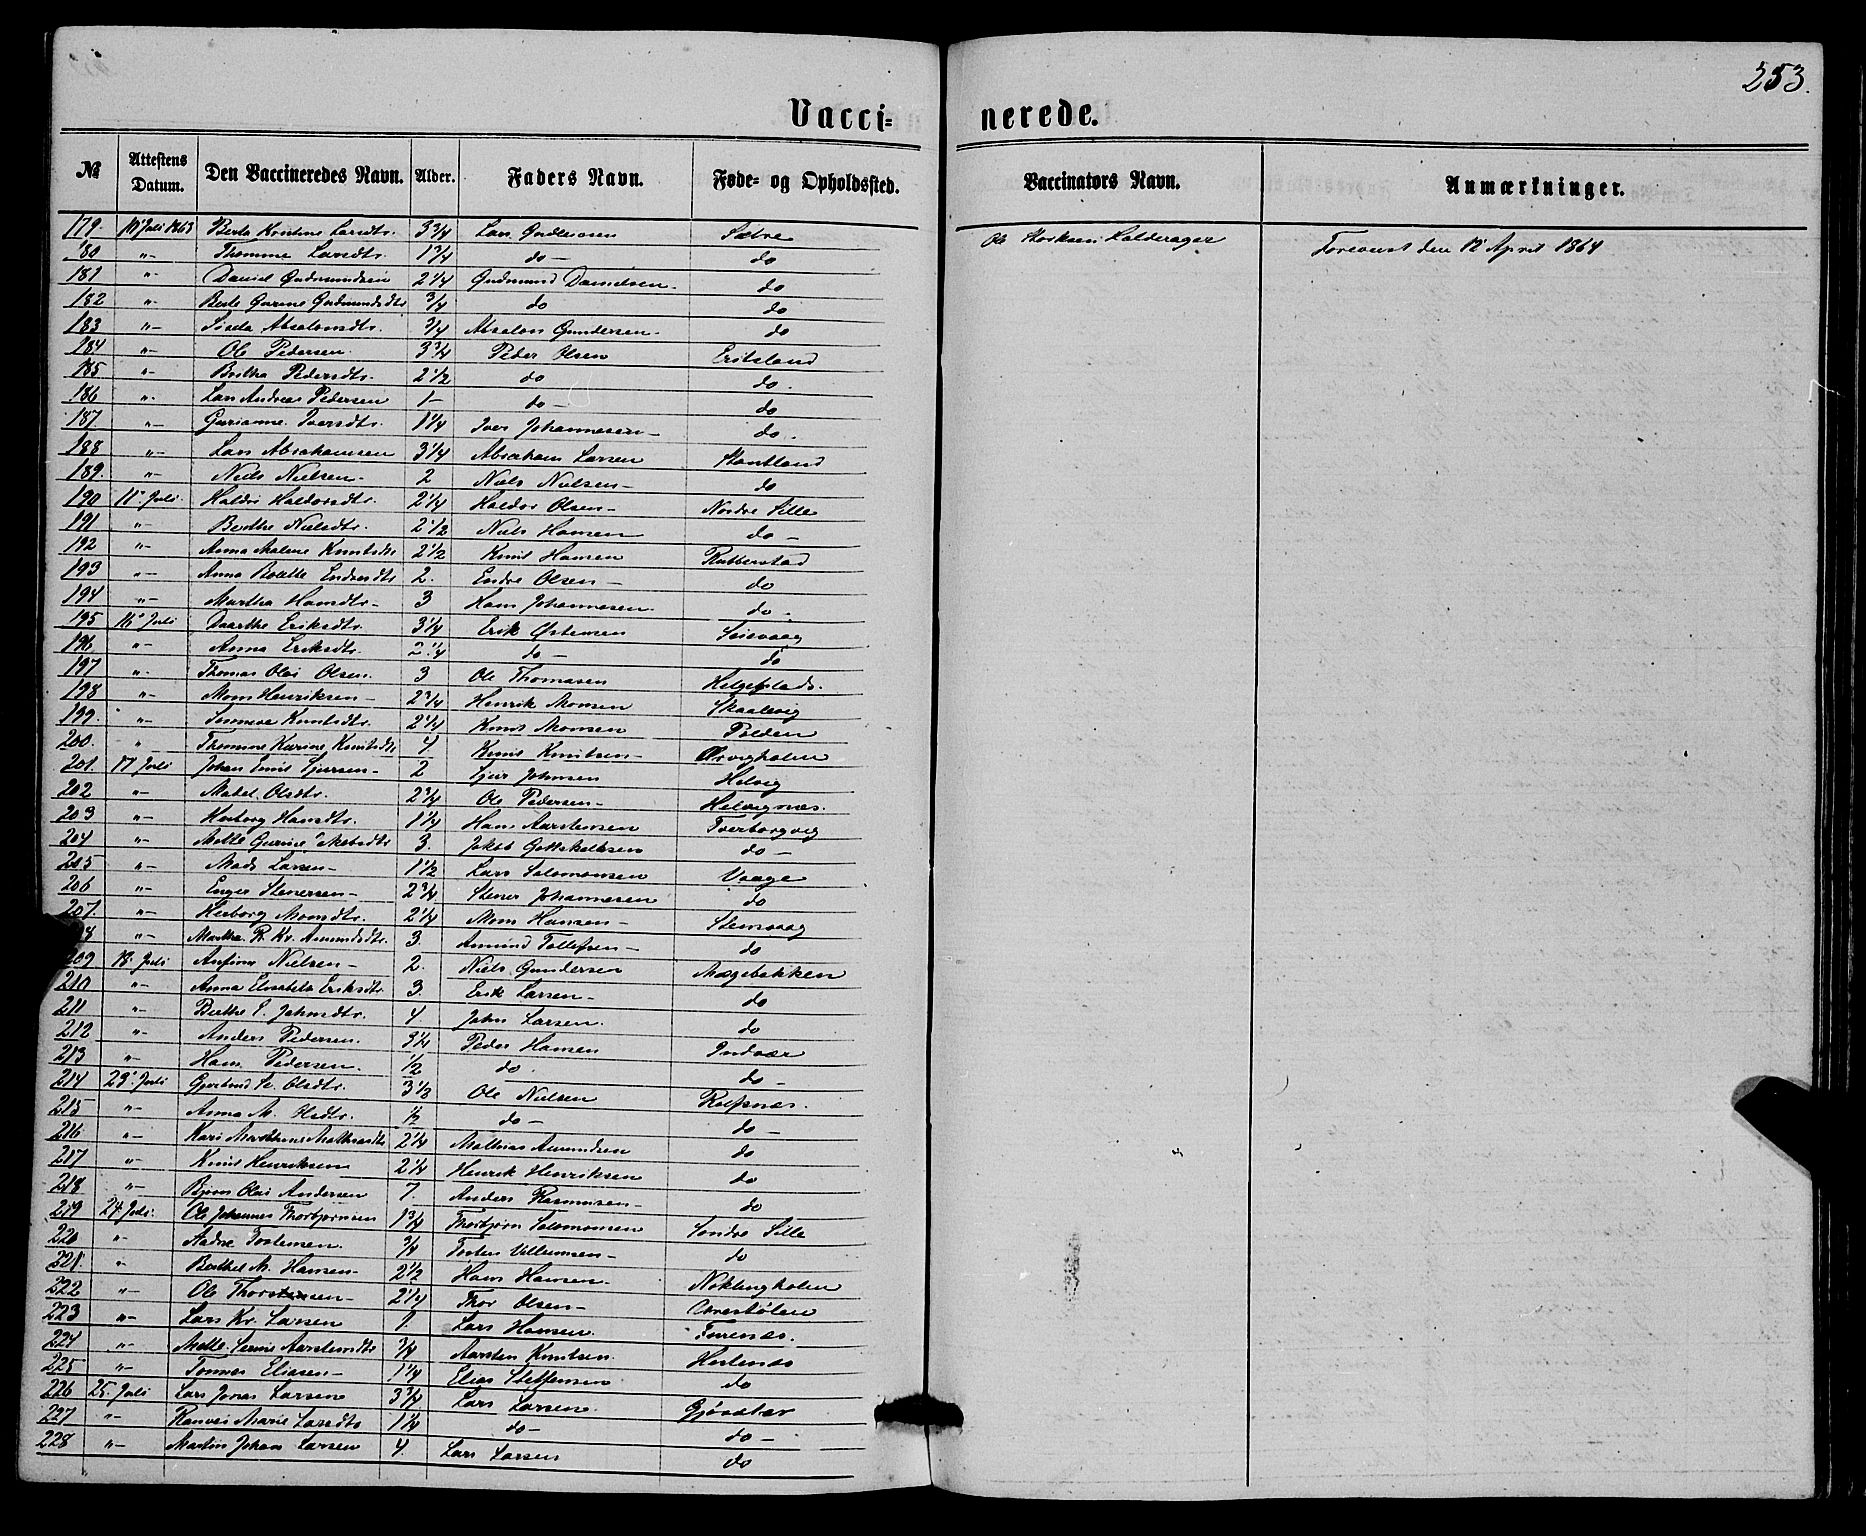 253.
Vacci=
nerede.
№ Attestens Datum. Den Vaccineredes Navn. Alder. Faders Navn. Føde= og Opholdssted. Vaccinators Navn. Anmærkninger.
179. Juli 1863 Berte Kristine Larsdtr. 3 3/4 Lars Sætre Ole Forevist den 12 April 1864
180 "- Thomine Larsdtr. 1 3/4 do- do
181 "- Daniel Gudmundsen 2 1/4 Gudmund Danielsen. do
182 "- Berte Gurine Gudmundsdtr 3/4 do do
183 "- Absalonsdtr. 3/4 Absalon Gundersen- do
184 "- Ole Pedersen. 3 3/4 Peder Olsen Eritsland
185 "- Pedersdtr. 2 1/2 do do.
186 "- Lars Andreas Pedersen 1- do- do
187 "- Gurianne Iversdtr. 1 1/4 Iver Johannesen- do.
188 "- Lars Abrahamsen 3 1/4 Abraham Larsen
189. "- Niels Nielsen- 2 Niels Nielsen- do
190 11' Juli. Haldorsdtr. 2 1/4 Haldor Olsen- Nordre Sille
191 "- Berthe Nielsdtr. 2 1/2 Niels Hansen do-
192 "- Anna Malene Knutsdtr 2 1/2 Knut Hansen Rubbestad
193 "- Anna Bolette Endresdtr 2. Endre Olsen- do
194 "- Martha Hansdtr- 3 Hans Johannesen. do-
195 16' Juli Eriksdtr. 3 1/4 Erik Østensen
196 "- Anna Eriksdtr. 2 1/4 do- do
197 "- Thomas Olai Olsen. 3 Ole Thomasen
198 "- Mons Henriksen- 2 3/4 Henrik Monsen Skaalevig
199. "- Knutsdtr. 2 1/4 Knut Monsen Polden
200. "- Thomine Karine Knutsdtr 4 Knut Knutsen- Ørvigholm
201. 17 Juli Johan Emil Sjursen- 2 Sjur Johnsen Helvig
202 "- Madel. Olsdtr. 2 3/4 Ole Pedersen- Helvignæs.
203 "- Herborg Hansdtr. 1 1/4 Hans Aarstensen Tverborgvig
204 "- Mette Gurine 3. Jakob Gottskalksen do-
205 "- Mads Larsen- 1 1/2 Lars Salomonsen Vaage
206 "- Enger Stenersen- 2 3/4 Stener Johannesen do
207. "- Herborg Monsdtr. 2 1/4 Mons Hansen- Steinsvaag
"- Martha Kr. Amundsdtr. 3. Amund Tollefsen- do
209 18. Juli Anfinn Nielsen- 2. Niels Gundersen Mægebakken
210 "- Anna Elisabeta Eriksdtr. 3. Erik Larsen- do
211 "- Berthe S. Johnsdtr. 4. John Larsen. do
212 "- Anders Pedersen. 3 1/4 Peder Hansen Indvær
213 "- Hans Pedersen. 1/2 do. do-
214 23' Juli Gjertrud Olsdtr. 3 1/2 Ole Nielsen Rolfsnæs.
215 "- Anna M. Olsdtr. 1/2 do- do-
216 "- Kari Mathiasdtr 2 1/4 Mathias Amundsen do
217 "- Knut Henriksen 2 1/4 Henrik Henriksen do
218 "- Bjørn Olai Andersen 7. Anders Rasmusen- do
219 24. Juli. Ole Johannes Thorbjørnsen 1 3/4 Thorbjørn Salomonsen Søndre Sille
220 "- Torstensen. 3/4 Torsten Villumsen- do
221. "- Berthel M. Hansen- 2 1/2 Hans Hansen. Nøklingholm
222 "- Ole Thorsen- 2 1/4 Thor Olsen-
223 "- Lars Kr. Larsen 1. Lars Hansen. Furenæs.
224 "- Mette Aarstensdtr 3/4 Aarsten Knutsen.
225 "- Tønnes Eliasen- 1 1/4 Elias Steffensen do
226 25. Juli Lars Jonas Larsen 3 3/4 Lars Larsen. Gjøsæter
227 "- Marie Larsdtr 1 1/4 do- do-
228 "- Martin Johan Larsen 4. Lars Larsen do